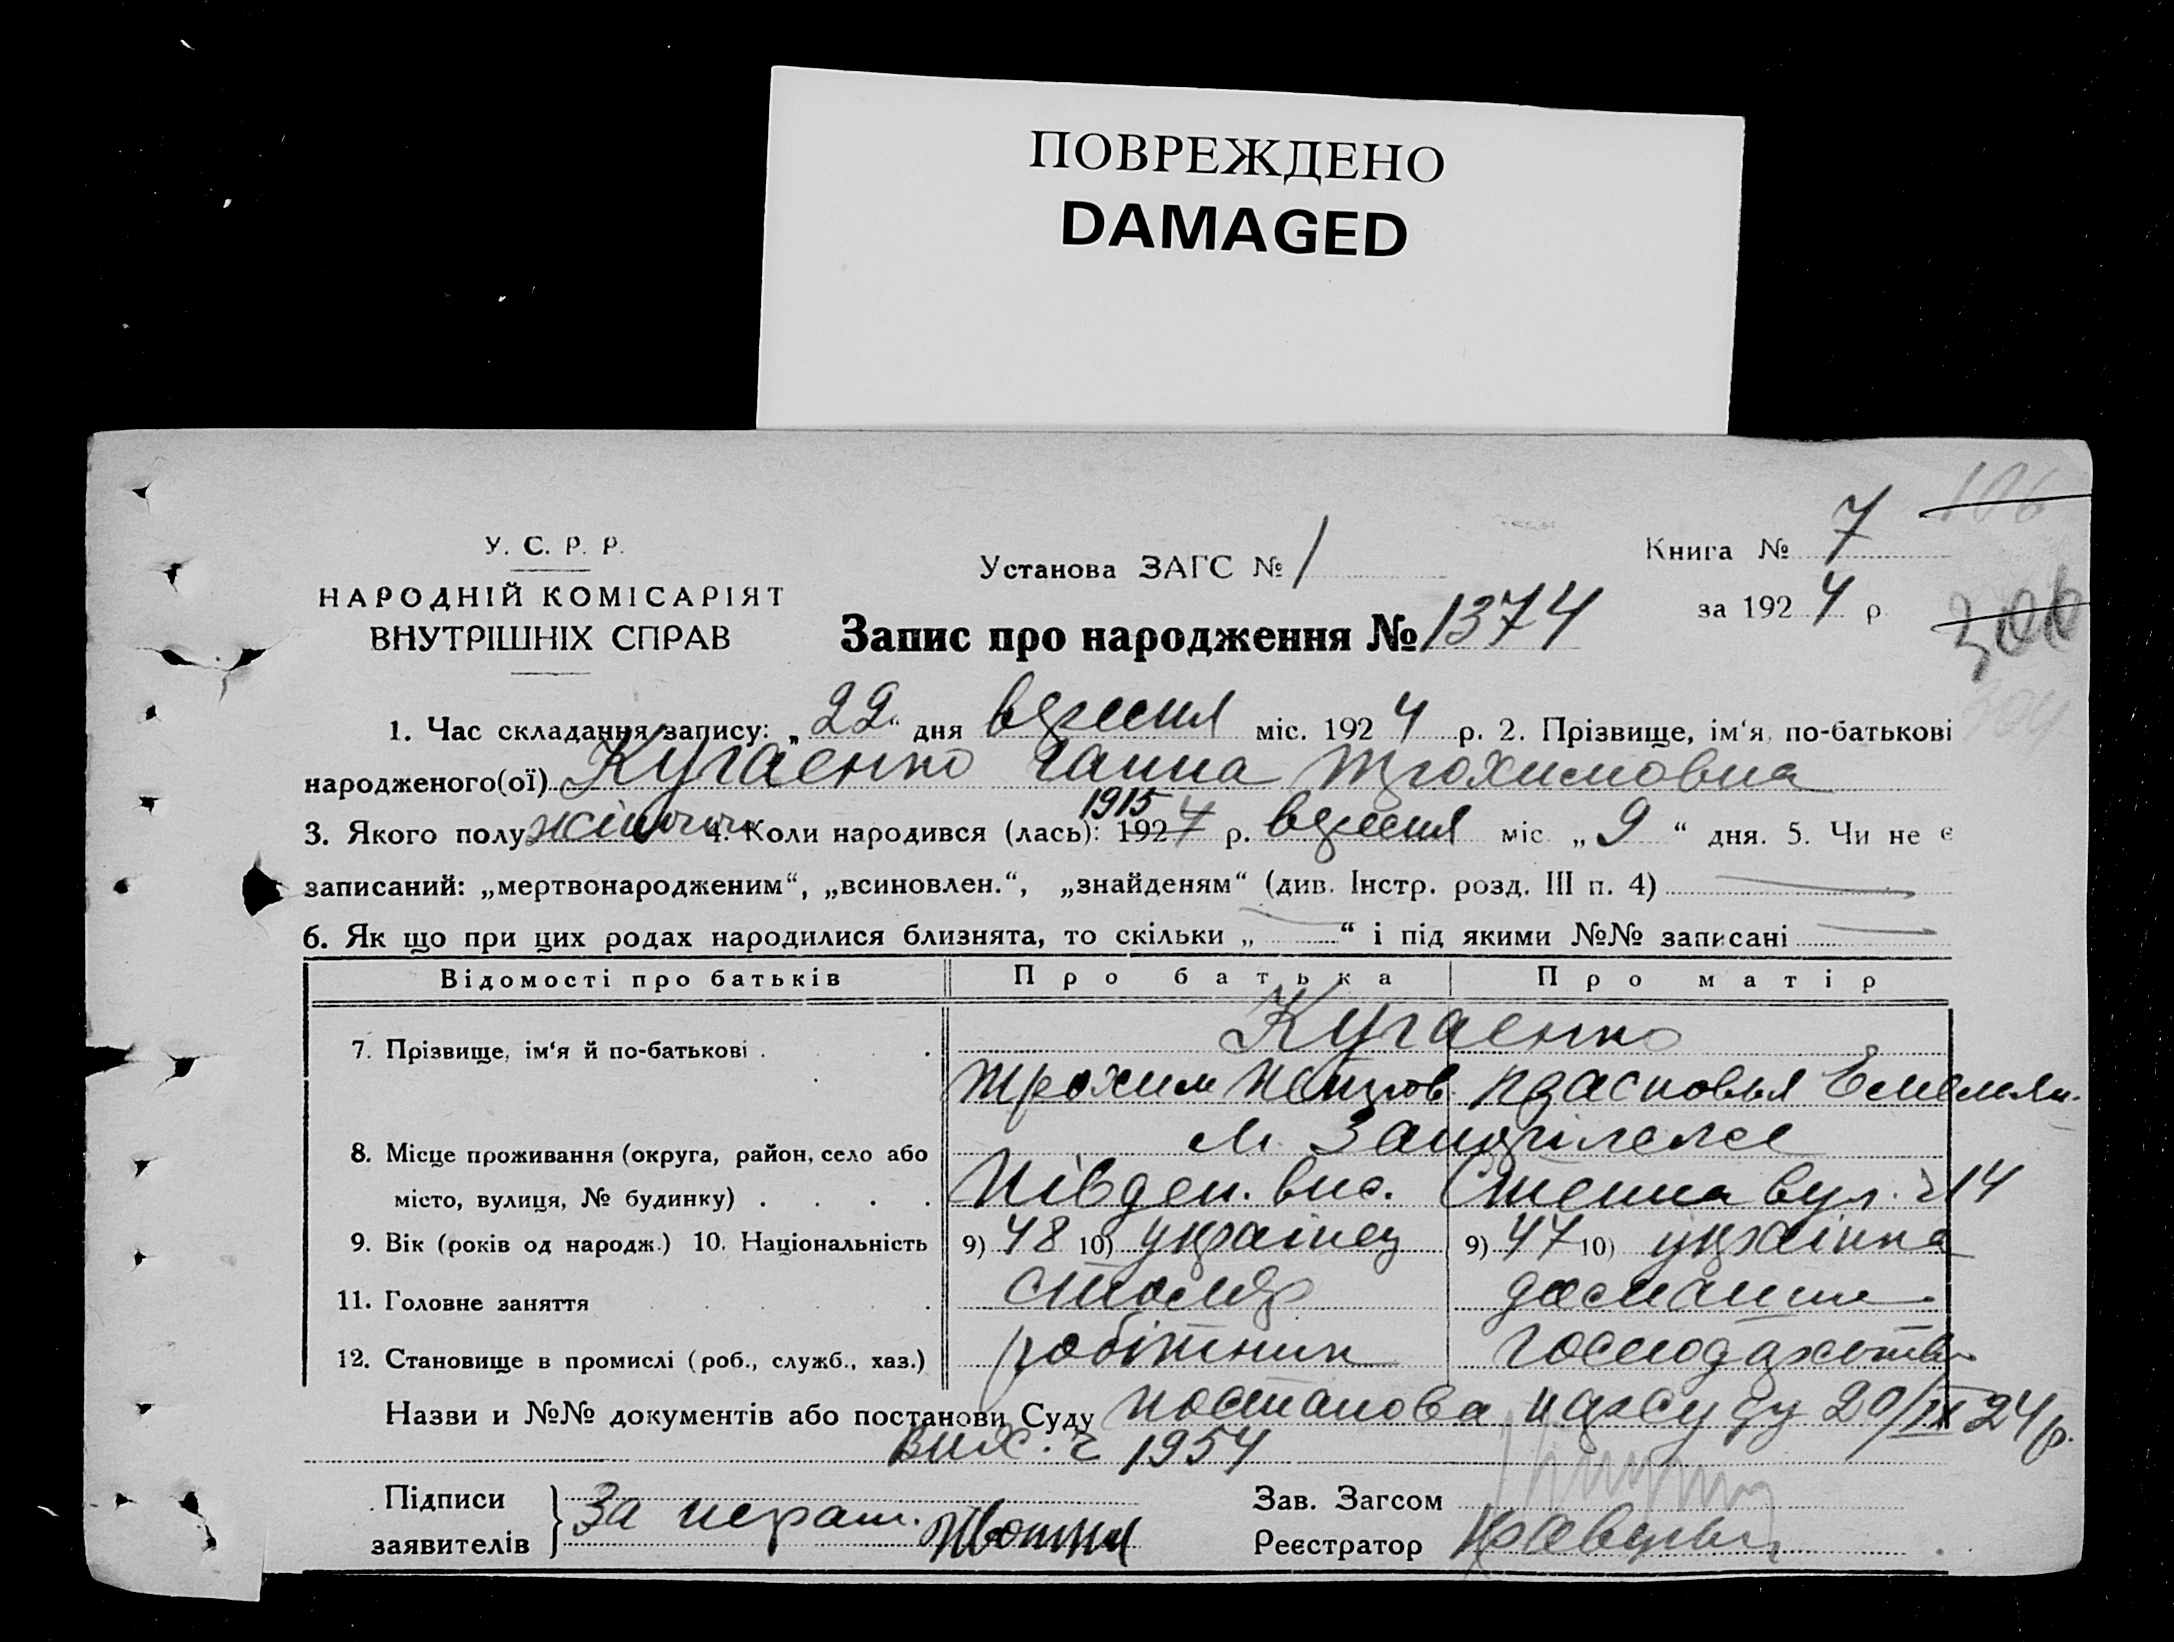 ПОВРЕЖДЕНО
DAMAGED
106
У. С. Р. Р.
НАРОДНІЙ КОМІСАРІЯТ
ВНУТРІШНІХ СПРАВ
Установа ЗАГС № 1
Книга № 7
за 1924 р
306
Запис про народження № 1374
1. Час складання запису: „22“ дня вересня міс. 1924 р. 2. Прізвище, ім‘я, по-батькові
народженого(ої) Кугаенко Ганна Трохимовна
1915
3. Якого полу жіноч 4. Коли народився (лась): 1924 р. вересня міс. „9“ дня. 5. Чи не є
записаний: „мертвонародженим“, „всиновлен.“, „знайденям“ (див. Інстр. розд. III п. 4)
6. Як що при цих родах народилися близнята, то скільки „ “ і під якими №№ записані
Відомості про батьків Про батька Про матір
7. Прізвище, ім‘я й по-батькові Кугаенко
Трохим Петров Прасковья Емельян.
8. Місце проживання (округа, район, село або м.
місто, вулиця, № будинку) Півден. вис. Степна вул. ч 14
9. Вік (років од народж.) 10. Національність 9) 48 10) українец 9) 47 10) українка
11. Головне заняття столяр домашне
12. Становище в промислі (роб., служб., хаз.) робітник господарство
Назви и №№ документів або постанови Суду постанова нарсуду 20/IX 24 р.
вих. ч 1954
Підписи
заявителів } За неграм.
Зав. Загсом
Реєстратор